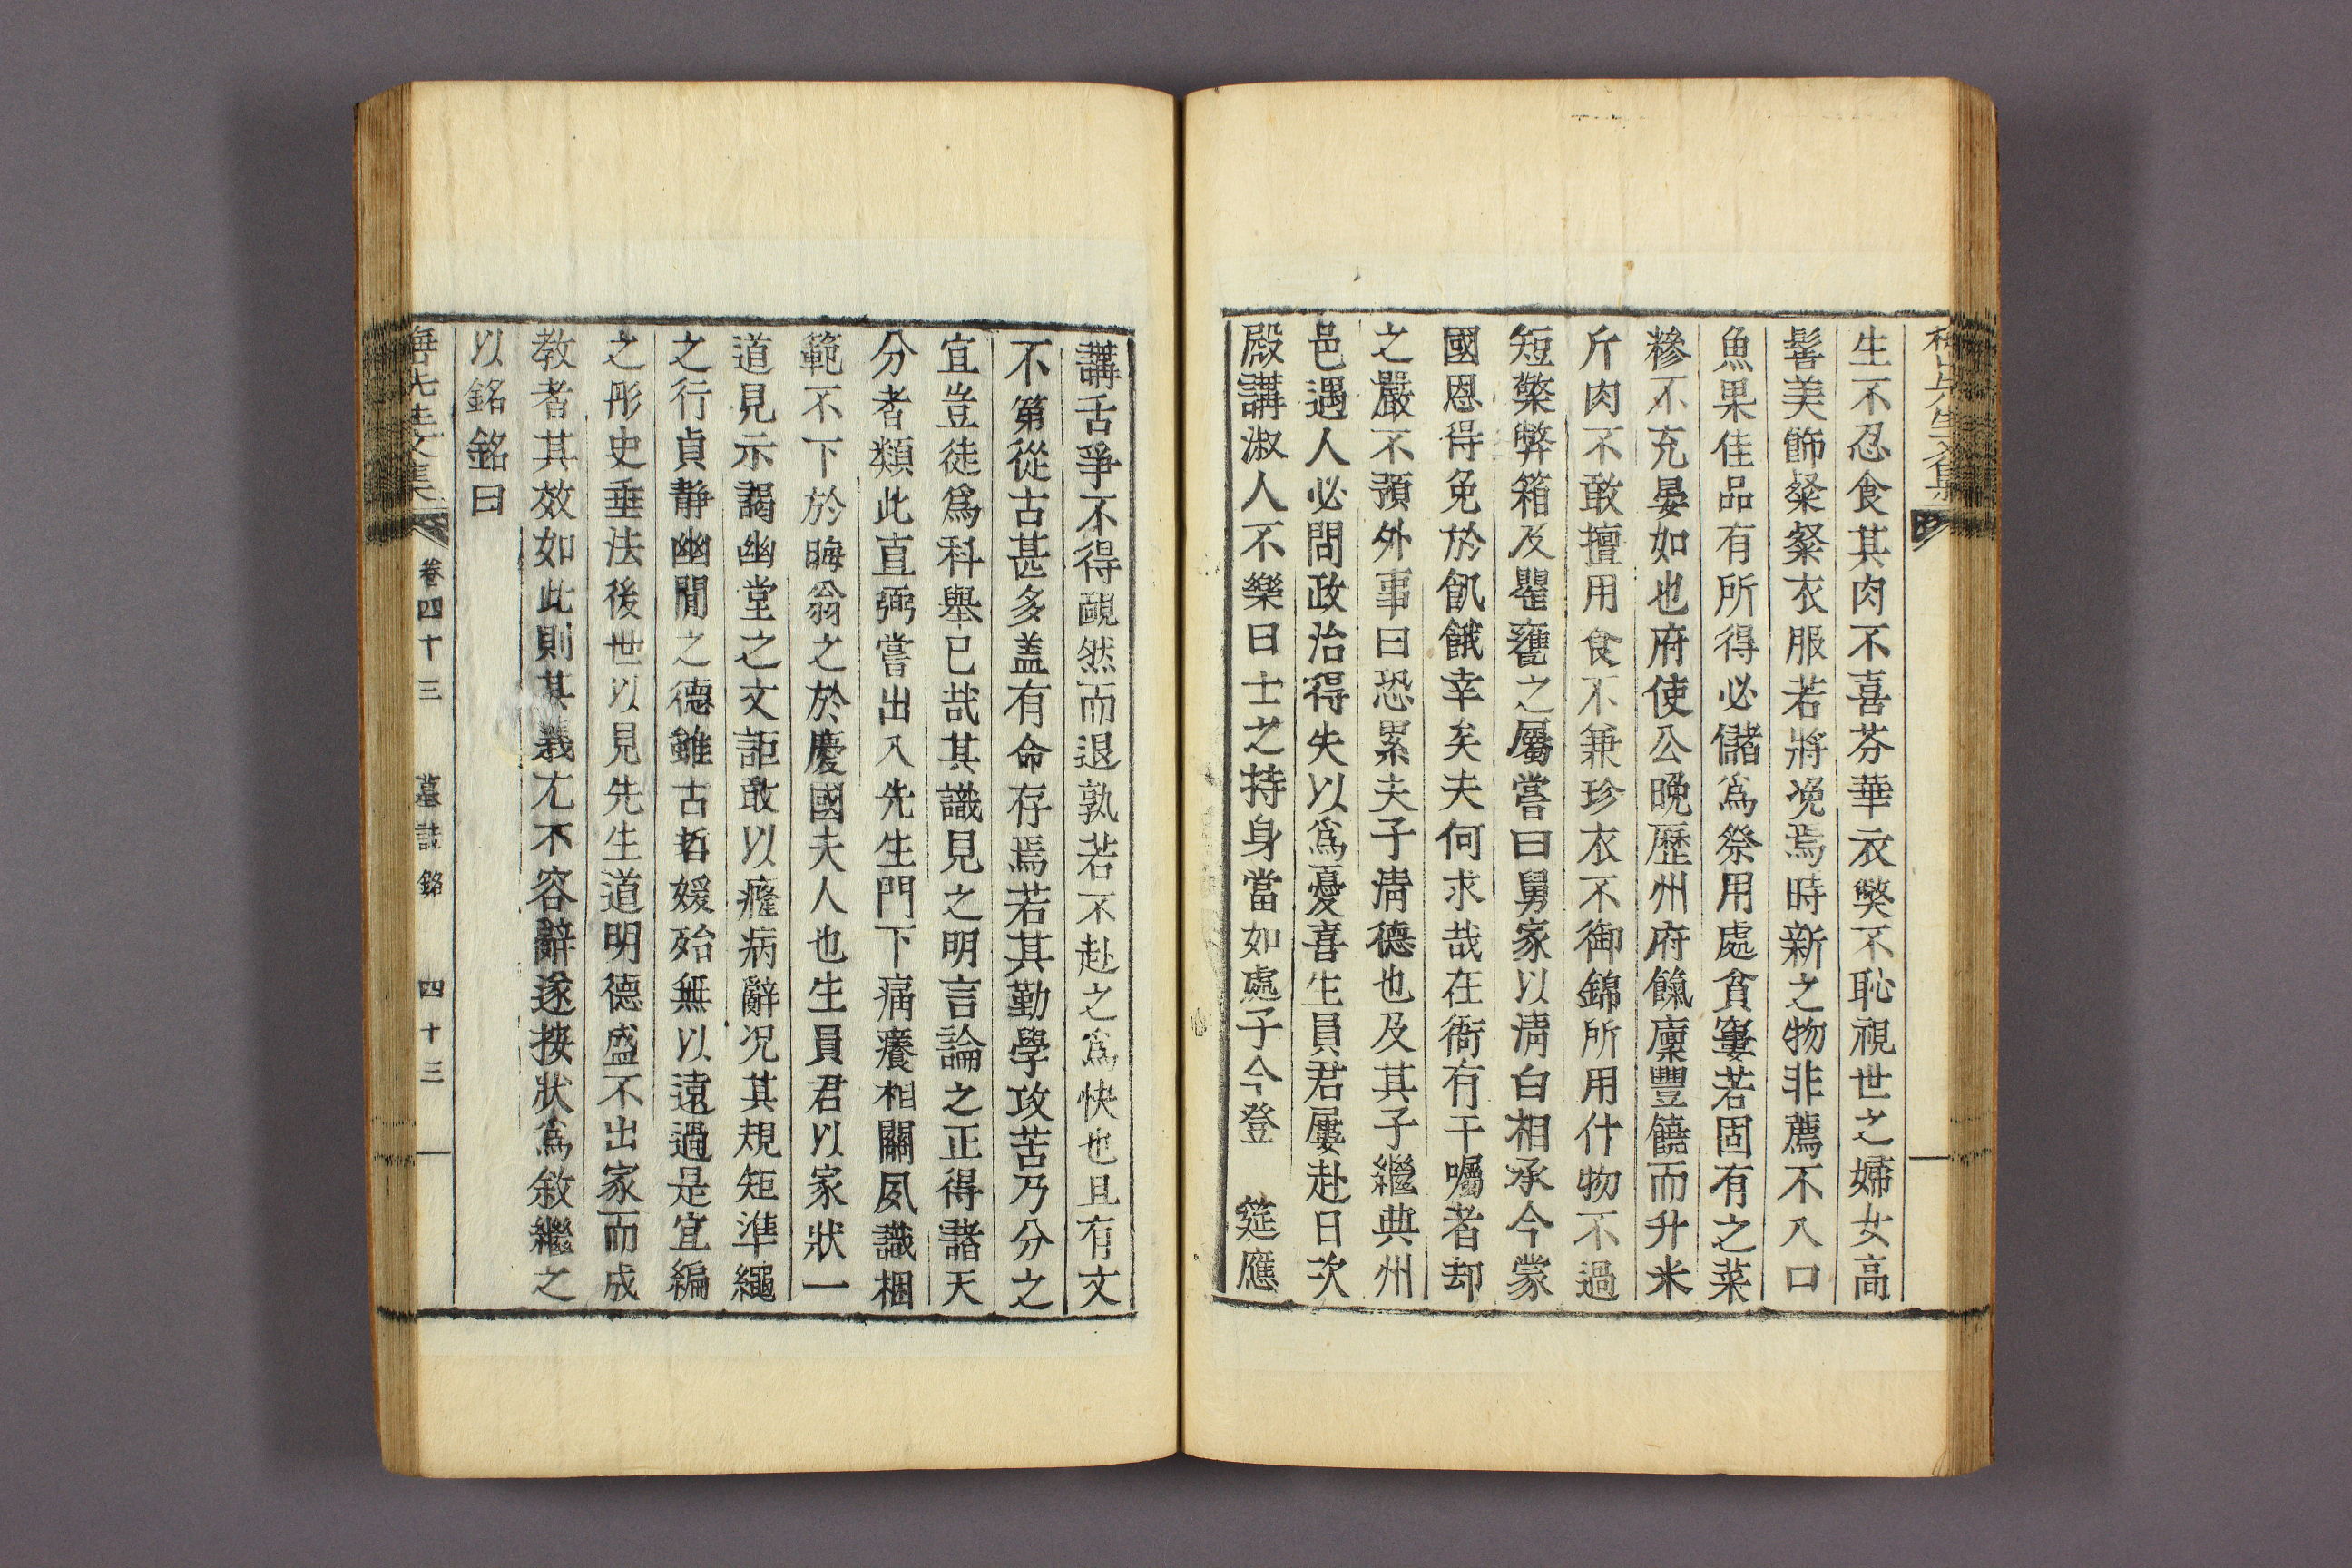 生不忍食其肉不喜芬華衣獘不恥視世之婦女高
髻美飾粲粲衣服若將凂焉時新之物非薦不入口
魚果佳品有所得必儲爲祭用處貧窶若固有之菜
糝不充晏如也府使公晩歷州府餼廩豐饒而升米
斤肉不敢擅用食不兼珍衣不御錦所用什物不過
短檠弊箱及瞿甕之屬嘗曰舅家以淸白相承今蒙
國恩得免於飢餓幸矣夫何求哉在衙有干囑者却
之嚴不預外事曰恐累夫子淸德也及其子繼典州
邑遇人必問政治得失以爲憂喜生員君屢赴日次
殿講淑人不樂曰士之持身當如處子今登　筵應
講舌爭不得靦然而退孰若不赴之爲快也且有文
不第從古甚多盖有命存焉若其勤學攻苦乃分之
宜豈徒爲科舉已哉其識見之明言論之正得諸天
分者類此直弼嘗出入先生門下痛癢相關夙識梱
範不下於晦翁之於慶國夫人也生員君以家狀一
道見示謁幽堂之文詎敢以癃病辭况其規矩準繩
之行貞靜幽閒之德雖古哲媛殆無以遠過是宜編
之彤史垂法後世以見先生道明德盛不出家而成
教者其效如此則其義尤不容辭遂按狀爲敘繼之
以銘銘曰
先生文集
卷四十三
墓誌銘
四十三